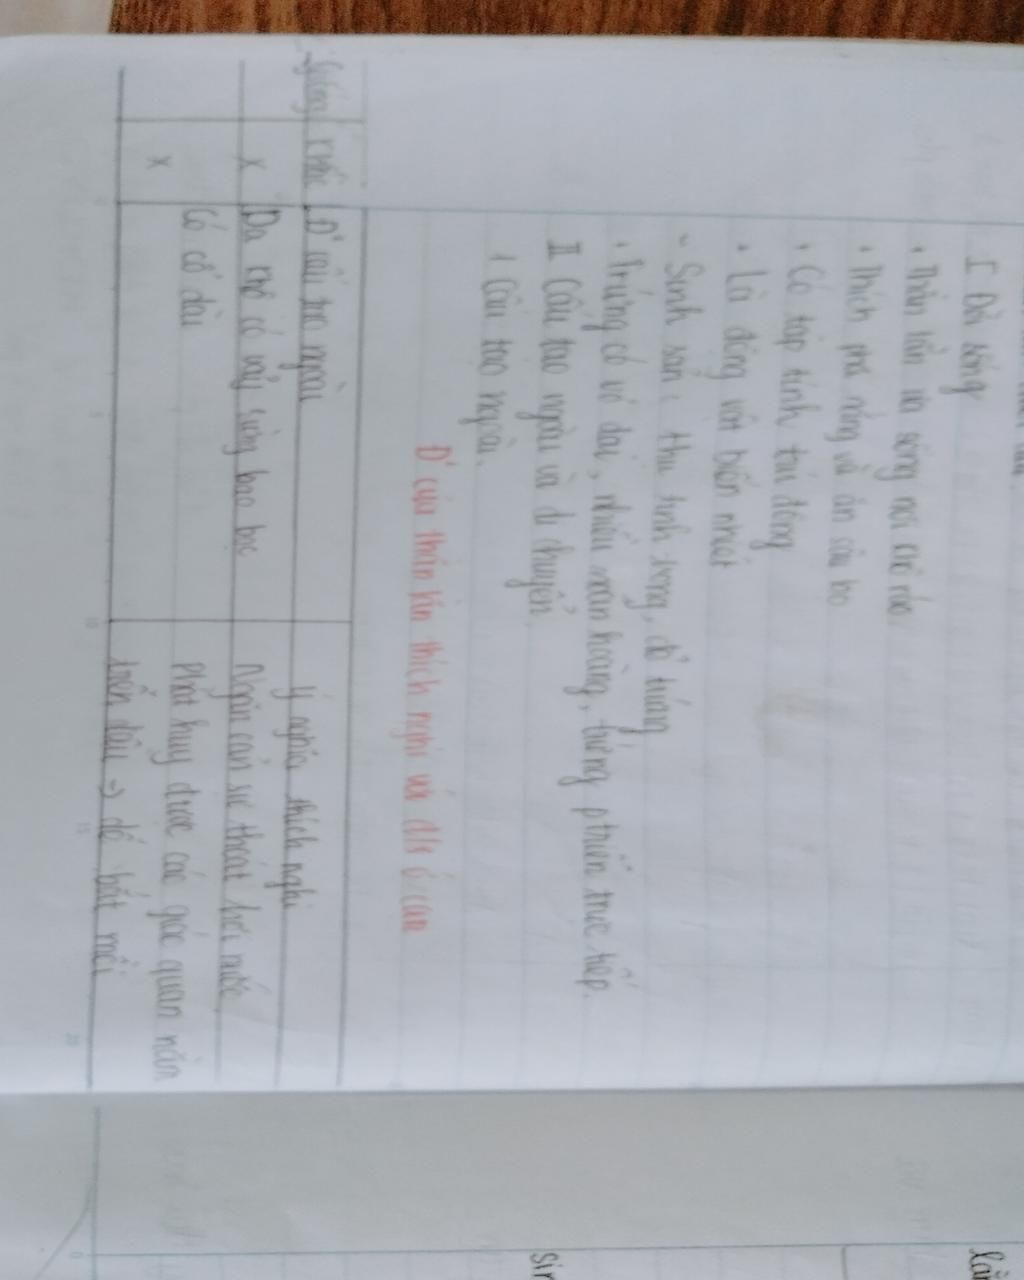 I Đời sống
• Thằn lằn ưa sống nơi khô ráo
• Thích phơi nắng và ăn sâu bọ
• Có tập tính trú đông
• Là động vật biến nhiệt
- Sinh sản: thụ tinh trong, đẻ trứng
• Trứng có vỏ dai, nhiều noãn hoàng, trứng phtriển trực tiếp.
II Cấu tạo ngoài và di chuyển
1 Cấu tạo ngoài.
Đ² của thằn lằn thích nghi với đ/s ở cạn
Giống Khác Đ² cấu tạo ngoài Ý nghĩa thích nghi
x Da khô có vảy sừng bao bọc Ngăn cản sự thoát hơi nước
x Có cổ dài Phát huy được các giác quan nằm
trên đầu => dễ bắt mồi